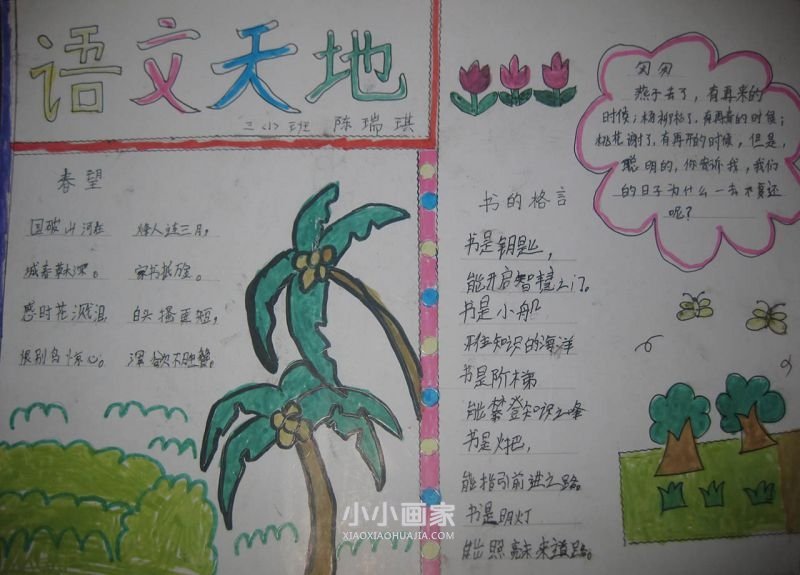 语文天地
三小班 陈瑞琪
春望
国破山河在 烽人连三月,
城春草木深。 家书抵万金。
感时花溅泪 白头搔更短,
恨别鸟惊心。 浑欲不胜簪。
书的格言
书是钥匙,
能开启智慧之门。
书是小船
知识的海洋
书是阶梯
能攀登知识之峰
书是灯巴,
能指引前进之路。
书是明灯
能照亮未来道路。
匆匆
燕子去了,有再来的
时候;杨柳枯了,有再青的时候;
桃花谢了,有再开的时候,但是,
聪明的,你告诉我,我们
的日子为什么一去不复还
呢?
小小画家
XIAOXIAOHUAJIA.COM